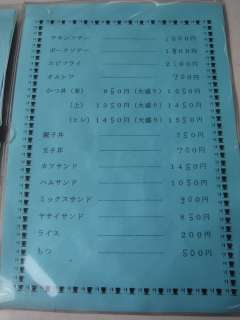 チキンソテー ――― 1800円
ポークソテー ――― 1800円
エビフライ ――― 2100円
オムレツ ――― 700円
かつ丼 (並) 950円 (大盛り) 1050円
(上) 1350円 (大盛り) 1450円
(ヒレ) 1450円 (大盛り) 1550円
親子丼 ――― 円
玉子丼 ――― 700円
カツサンド ――― 1450円
ハムサンド ――― 1050円
ミックスサンド ――― 900円
ヤサイサンド ――― 850円
ライス ――― 200円
もつ ――― 500円